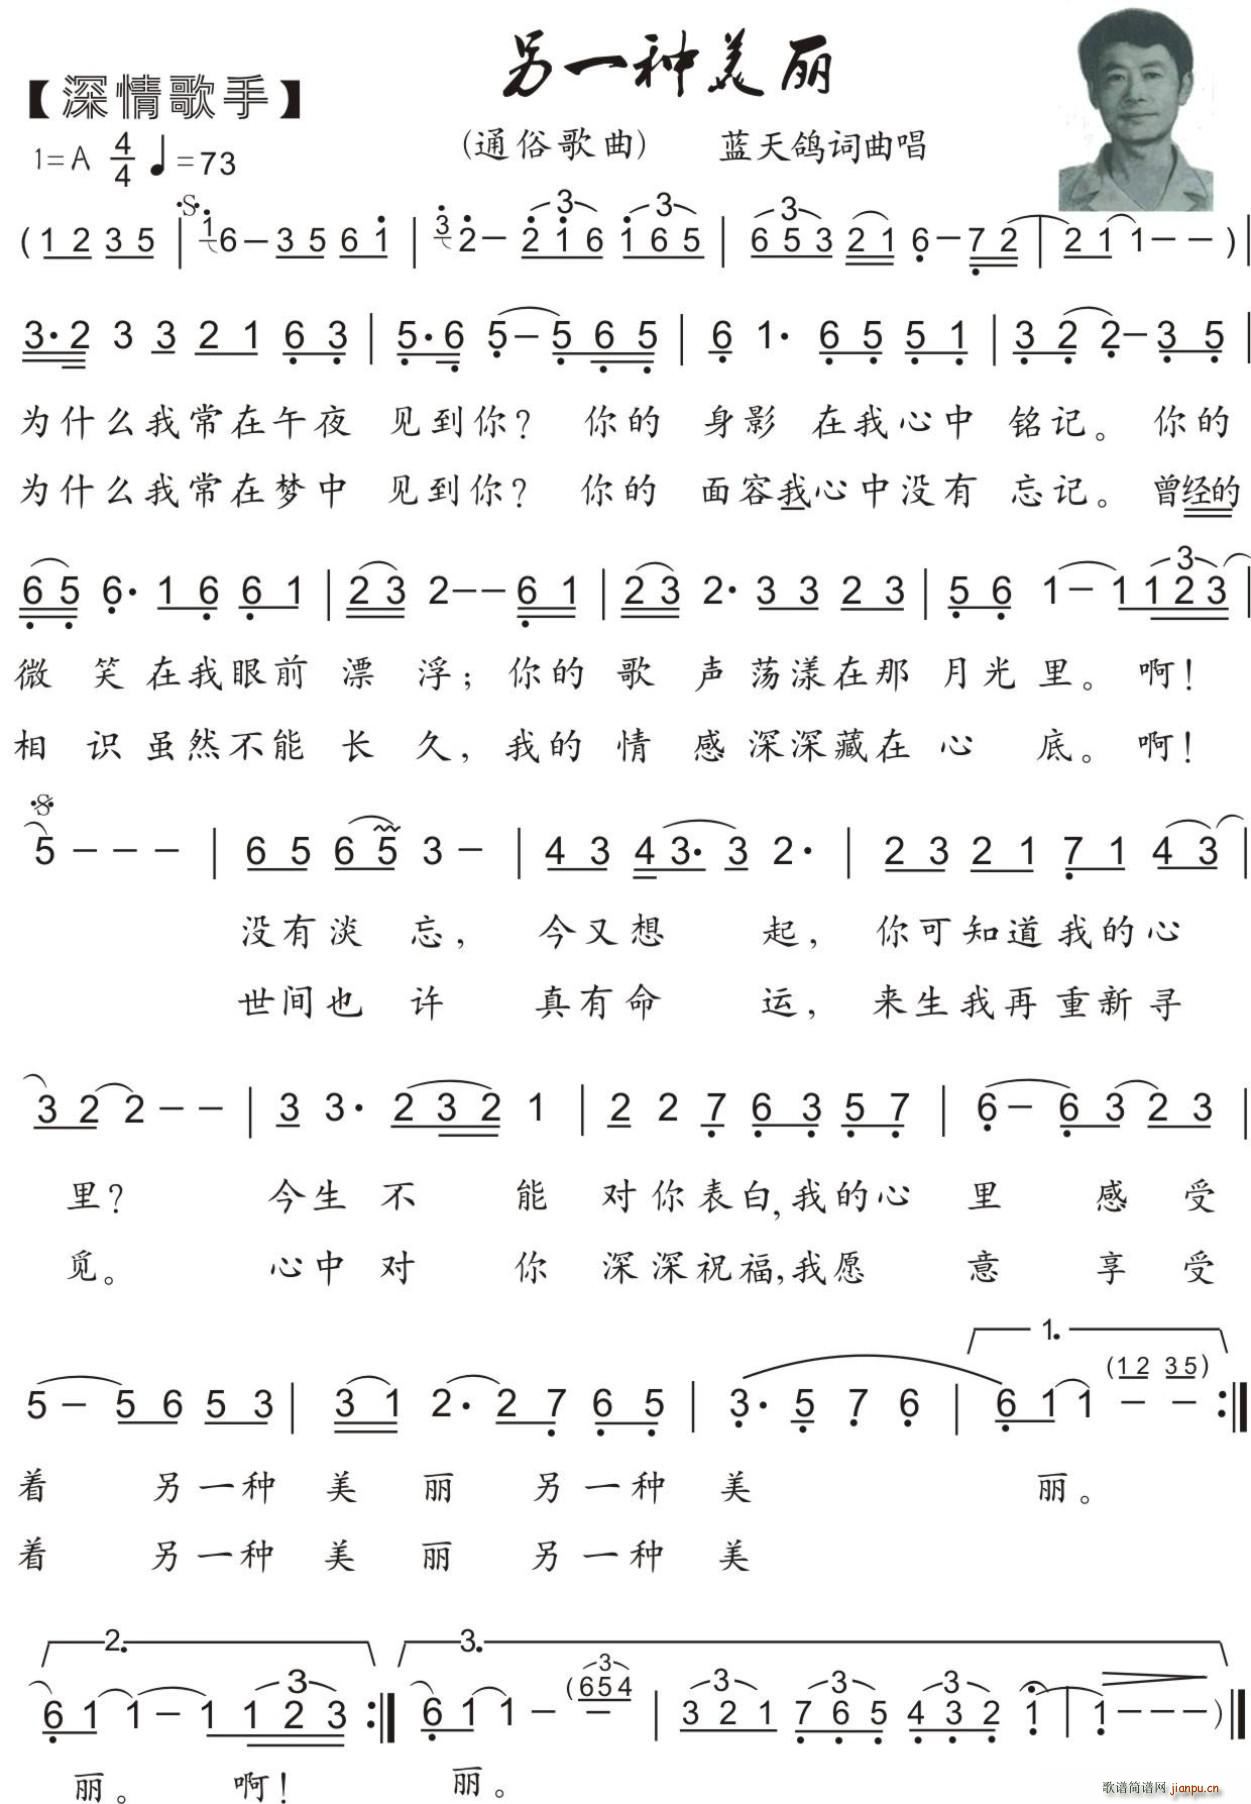 另一种美丽
【深情歌手】
(通俗歌曲) 蓝天鸽词曲唱
1=A 4/4 ♩=73
( 1 2 3 5 | 1 6 – 3 5 6 1 | 3 2 – 2 1 6 1 6 5 | 6 5 3 2 1 6 – 7 2 | 2 1 1 – – ) |
3· 2 3 3 2 1 6 3 | 5· 6 5 – 5 6 5 | 6 1· 6 5 5 1 | 3 2 2 – 3 5 |
为什么我常在午夜 见到你? 你的 身影 在我心中 铭记。 你的
为什么我常在梦中 见到你? 你的 面容我心中没有 忘记。 曾经的
6 5 6· 1 6 6 1 | 2 3 2 – – 6 1 | 2 3 2· 3 3 2 3 | 5 6 1 – 1 1 2 3 |
微 笑 在我眼前 漂 浮; 你的 歌 声 荡漾在那 月光 里。 啊!
相 识 虽然不能 长 久, 我的 情 感 深深藏在 心 底。 啊!
5 – – – | 6 5 6 5 3 – | 4 3 4 3· 3 2· | 2 3 2 1 7 1 4 3 |
没有淡 忘, 今又想 起, 你可知道我的心
世间也 许 真有命 运, 来生我再重新寻
3 2 2 – – | 3 3· 2 3 2 1 | 2 2 7 6 3 5 7 | 6 – 6 3 2 3 |
里? 今生 不 能 对你表白,我的心 里 感 受
觅。 心中 对 你 深深祝福,我愿 意 享 受
1.
5 – 5 6 5 3 | 3 1 2· 2 7 6 5 | 3· 5 7 6 | 6 1 1 – – (1 2 3 5) :‖
着 另一种 美 丽 另一种 美 丽。
着 另一种 美 丽 另一种 美
2. 3.
6 1 1 – 1 1 2 3 :‖ 6 1 1 – – (6 5 4 | 3 2 1 7 6 5 4 3 2 1 | 1 – – – ) ‖
丽。 啊! 丽。
歌谱简谱网 jianpu.cn